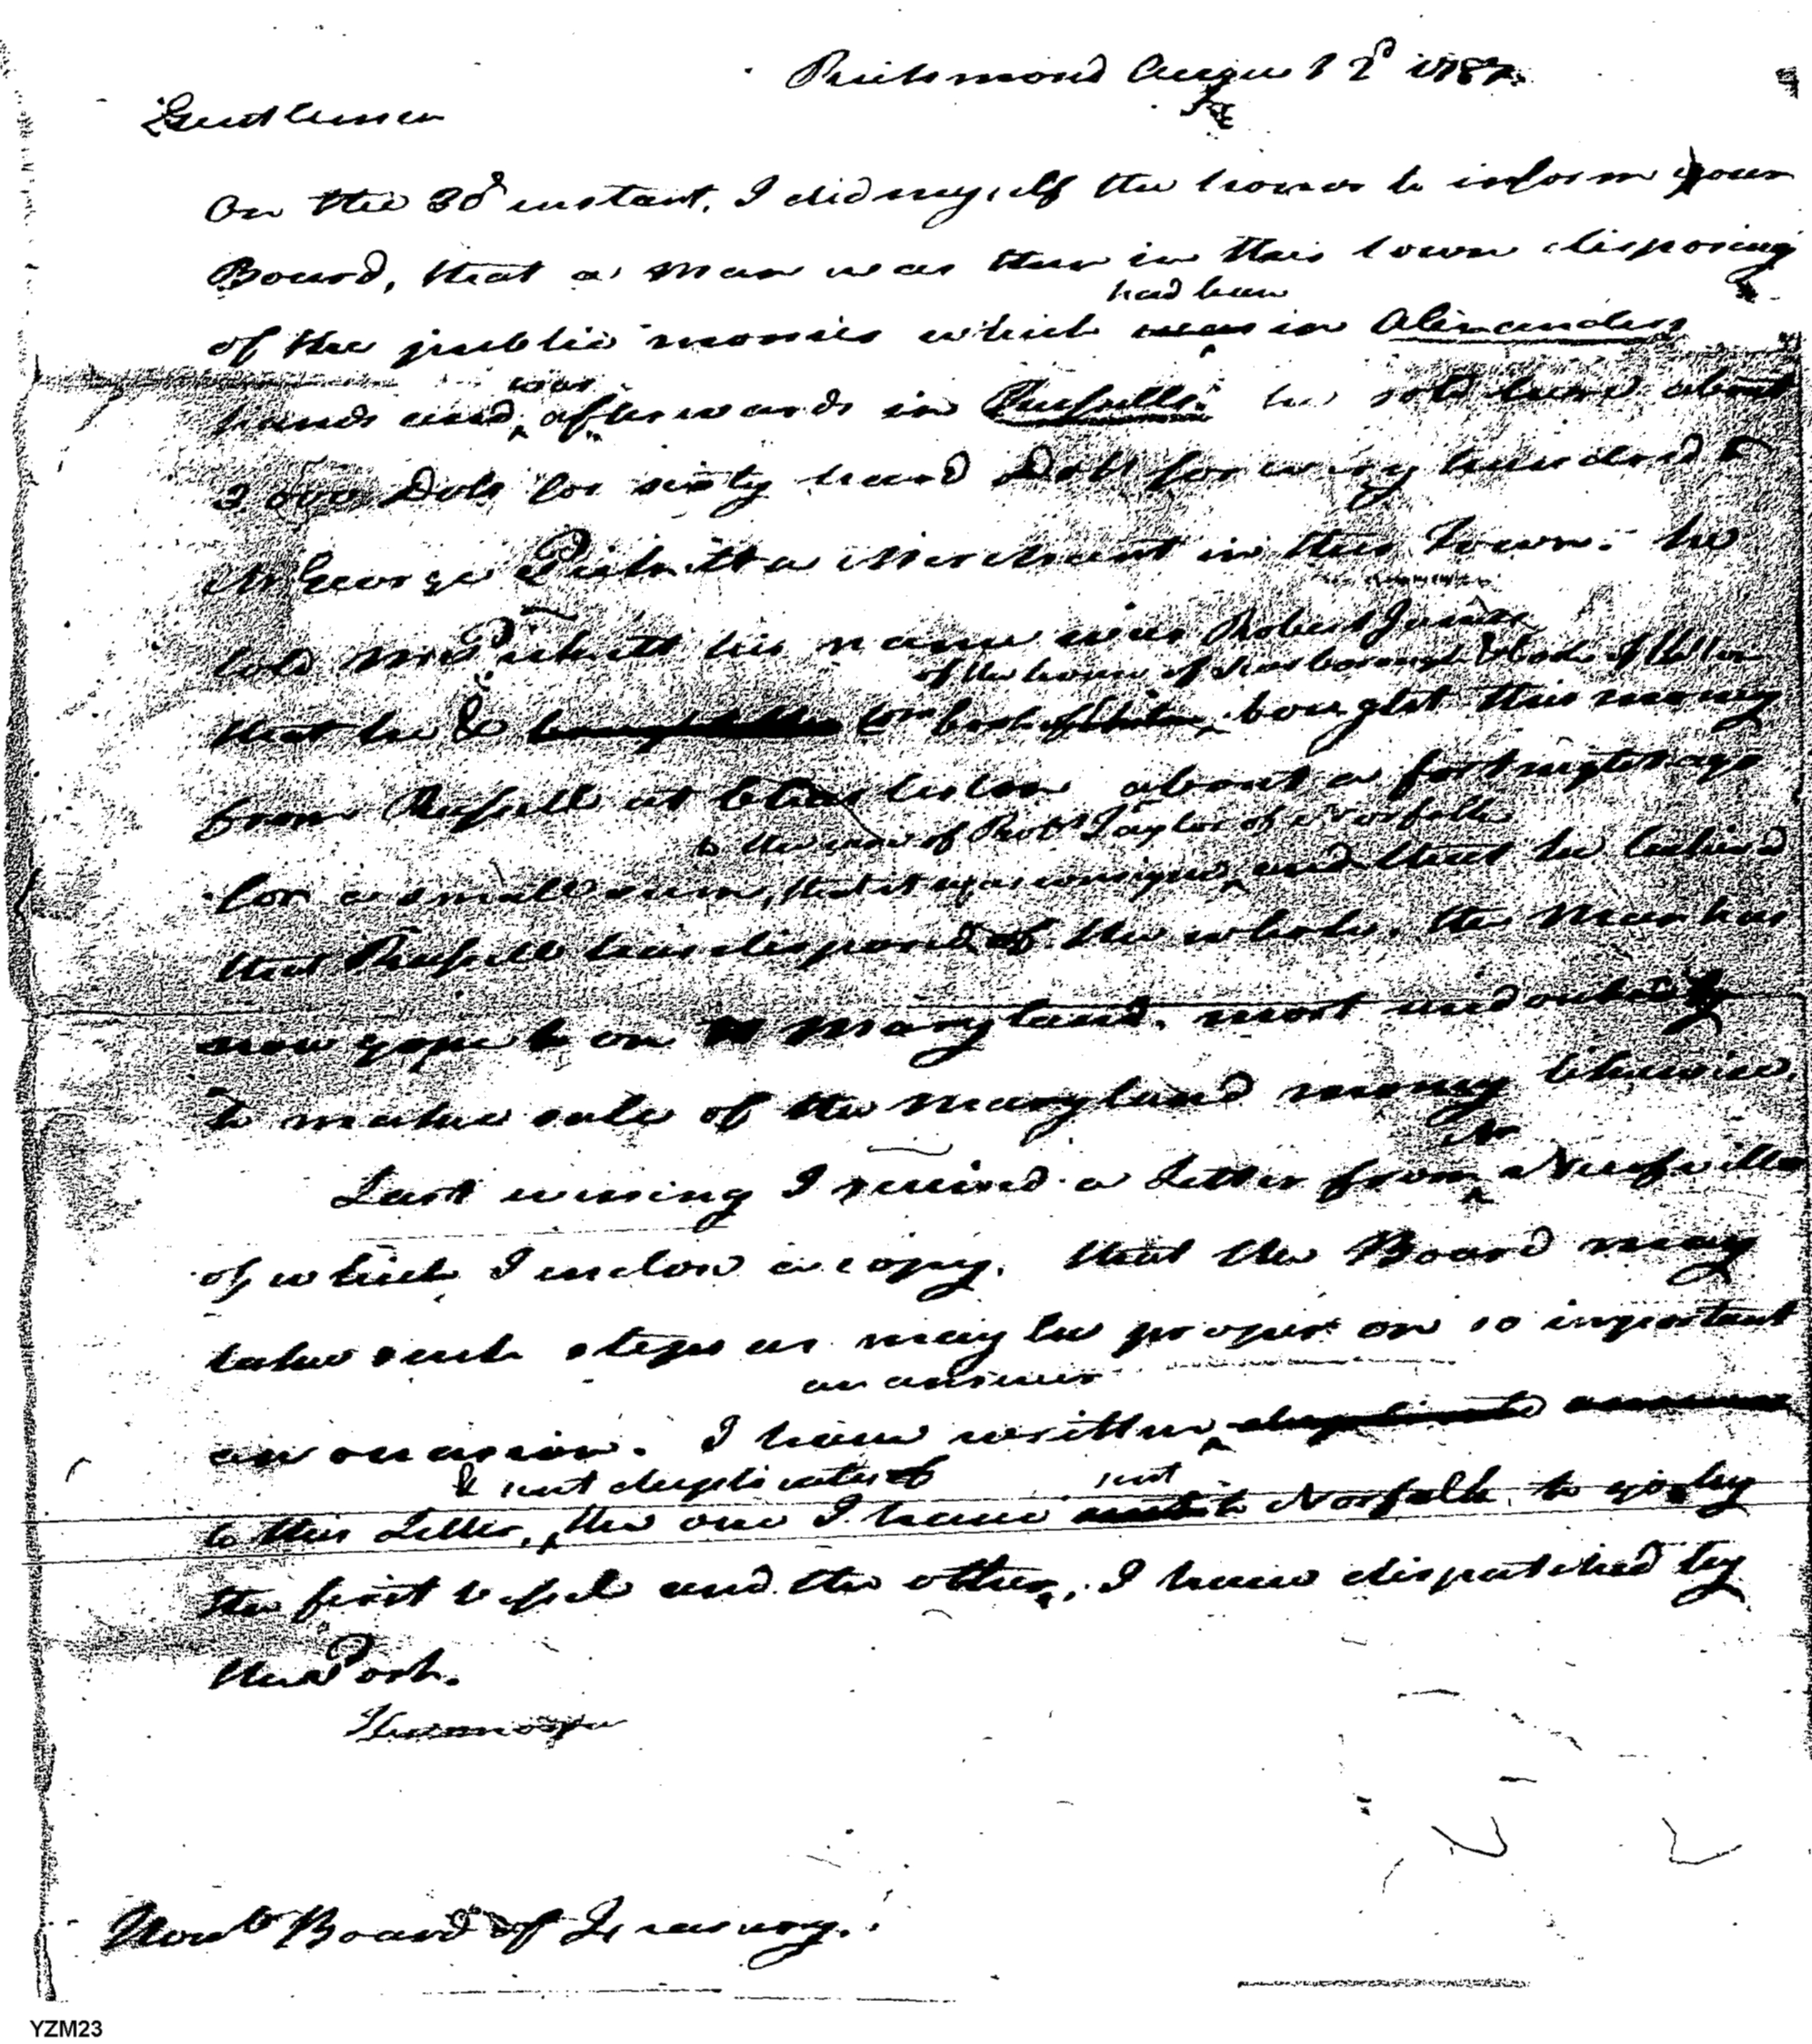 Richmond August 2d 1787.
Gentlemen
On the 3d instant, I did myself the honor to inform your
Board, that a man was then in this town disposing
had been
of the public monies which was in Alexanders
was
hands and afterwards in Russells. he sold here about
3000 Dols for sixty hard Dols for every hundred to
Mr George Pickett a Merchant in this Town. he
told Mr Pickett his name was Robert Jones
of the house of Scarborough & Cook of
that he & bought this money
from Russell at Charleston about a fortnight ago
to the care of Robt Taylor of Norfolk
for a small sum, that it was consigned and that he believed
that Russell has disposed of the whole. the Man has
now gone to on to Maryland. most undoubtedly
To make sale of the Maryland money likewise.
Mr
Last evening I received a Letter from Neufville
of which I inclose a copy. that the Board may
take such steps as may be proper on so important
an answer
an occasion. I have written duplicate
& sent duplicates of sent
to this Letter, the one I have to Norfolk, to go by
the first vessel and the other, I have dispatched by
the Post.
Honbl Board of Treasury.
YZM23